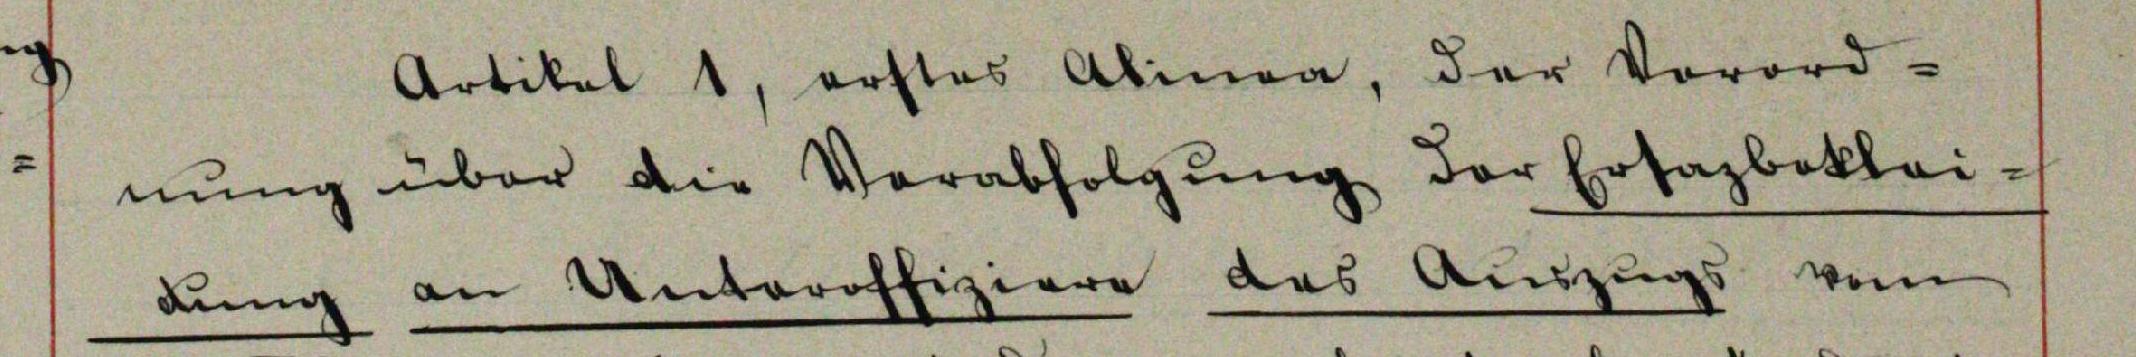 Artikel 1, erstes Alinea, der Verord=
nung über die Verabfolgung der Ersazbeklei=
dung an Unteroffiziere des Auszugs vom